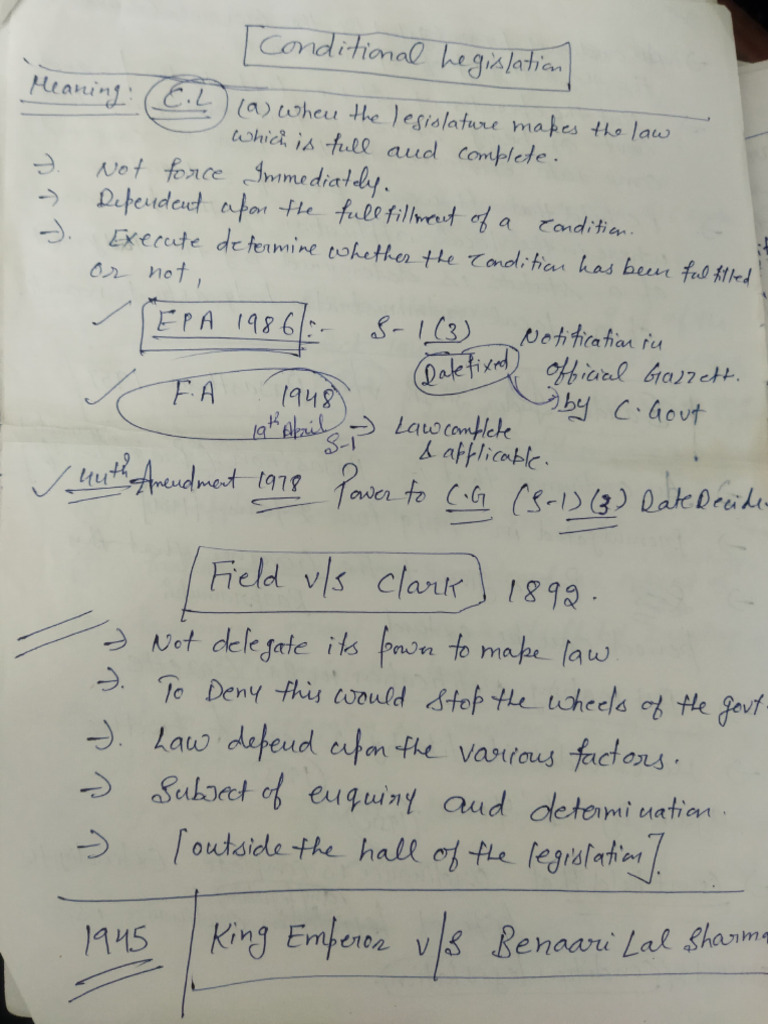 Conditional Legislation
Meaning: C.L (a) when the legislature makes the law
which is full and complete.
→ Not force Immediately.
→ Dependent upon the fullfillment of a condition.
→ Execute determine whether the condition has been fulfilled
or not,
✓ EPA 1986 :- S-1(3) Notification in
Date fixed Official Gazzett.
→ by C. Govt
✓ F.A 1948
19th April S-1 → Law complete
& applicable.
✓ 44th Amendment 1978 Power to C.G (S-1)(3) Date Decide
Field v/s Clark 1892.
→ Not delegate its power to make law
→ To Deny this would stop the wheels of the govt.
→ Law depend upon the various factors.
→ Subject of enquiry and determination.
→ [outside the hall of the legislation].
1945 King Emperor v/s Benaari Lal Sharma